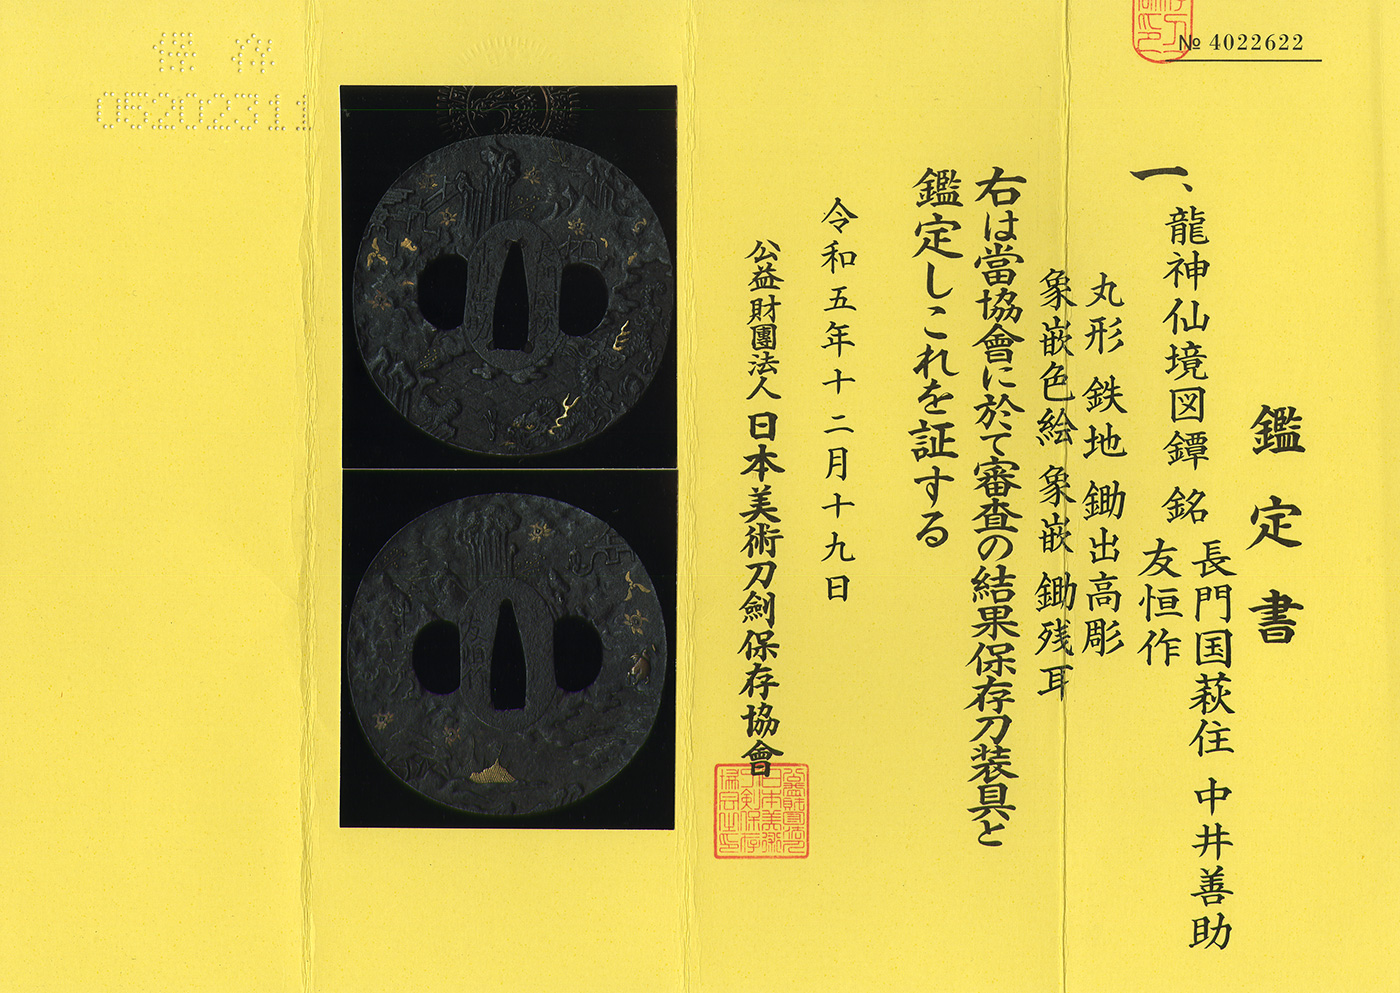 № 4022622
鑑定書
一、龍神仙境図鐔 銘 長門国萩住 中井善助
友恒作
丸形 鉄地 鋤出高彫
象嵌色絵 象嵌 鋤残耳
右は當協會に於て審査の結果保存刀装具と
鑑定しこれを証する
令和五年十二月十九日
公益財團法人 日本美術刀劍保存協會
保存
05202311